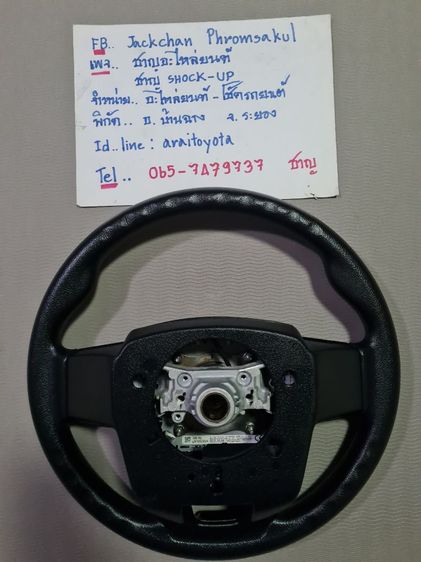 FB.. Jackchan Phromsakul
เพจ.. ชาญอะไหล่ยนต์
ชาญ SHOCK-UP
จำหน่าย.. อะไหล่ยนต์-โช๊ครถยนต์
พิกัด.. อ.บ้านฉาง จ.ระยอง
Id.line: araitoyota
Tel.. 065-7479737 ชาญ